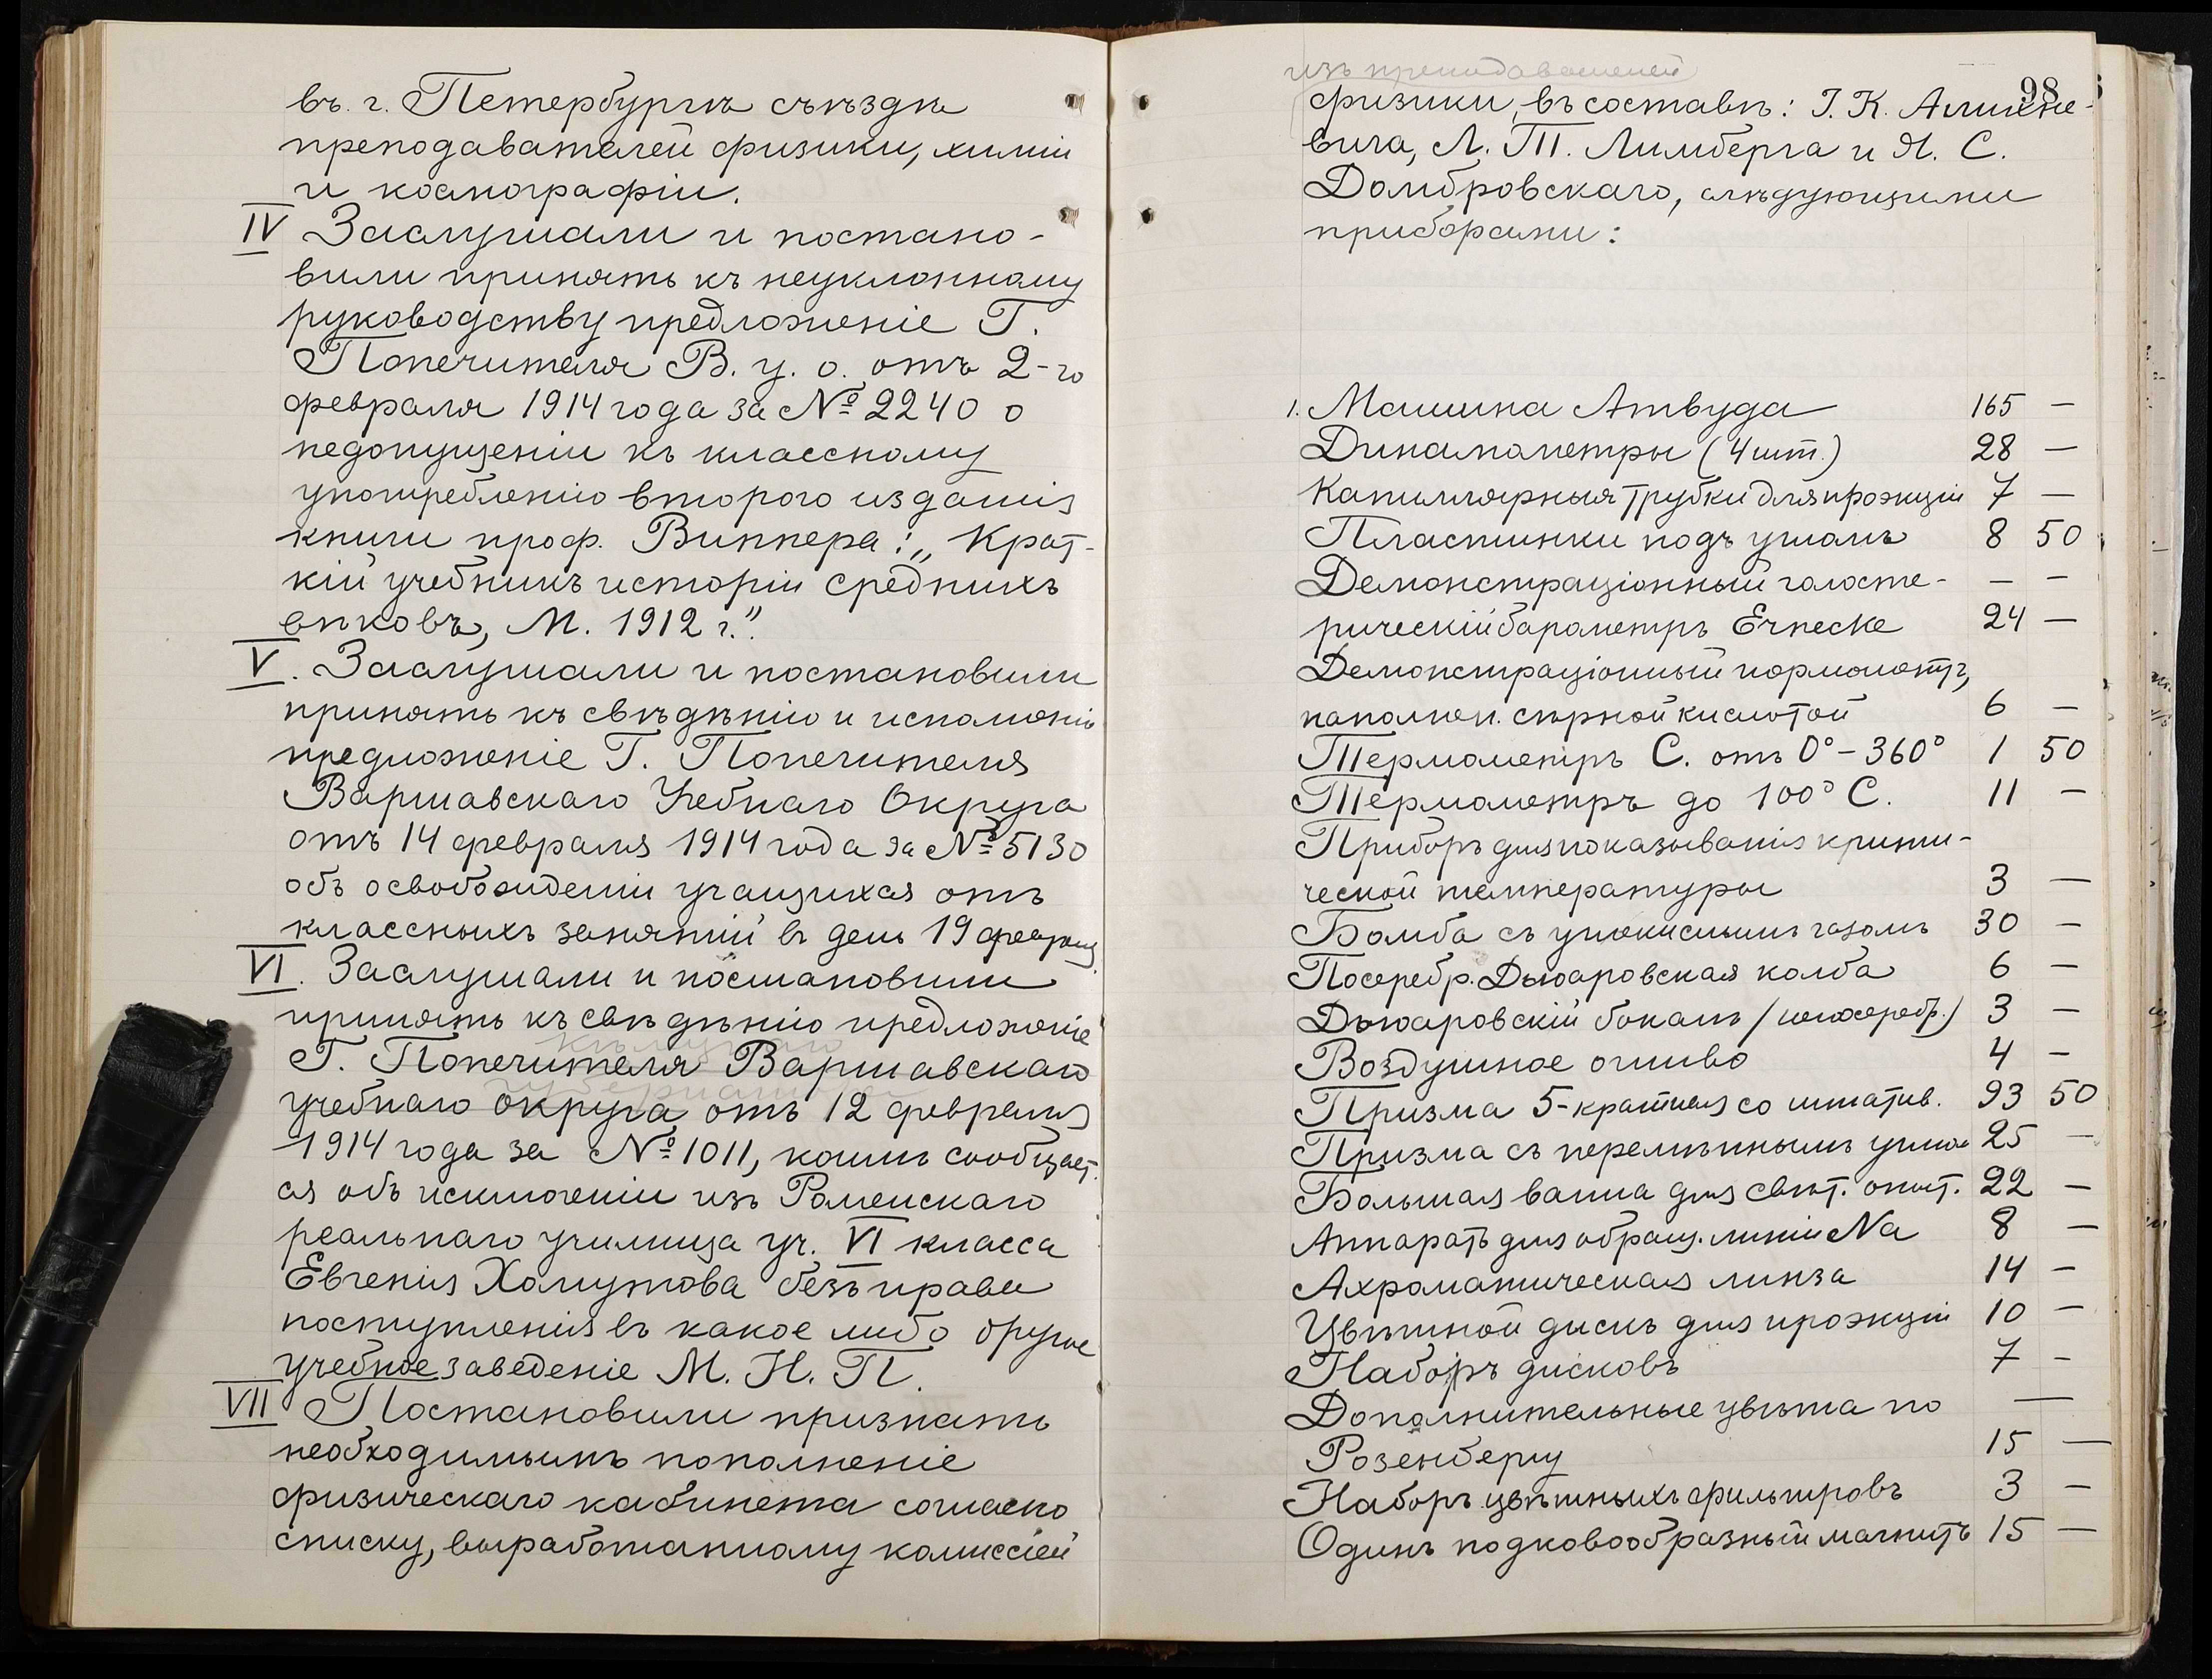 въ г. Петербургѣ съѣздѣ
преподавателей физики, химіи
и космографіи.
IV Заслушали и постано-
вили принять къ неуклонному
руководству предложеніе Г.
Попечителя В. у. о. отъ 2-го
февраля 1914 года за № 2240 о
недопущеніи къ классному
употребленію второго изданія
книги проф. Виппера: „Крат-
кій учебникъ исторіи среднихъ
вѣковъ, М. 1912 г."
V. Заслушали и постановили
принять къ свѣдѣнію и исполненію
предложеніе Г. Попечителя
Варшавскаго Учебнаго Округа
отъ 14 февраля 1914 года за № 5130
объ освобожденіи учащихся отъ
классныхъ занятій въ день 19 февраля.
VI. Заслушали и постановили
принять къ свѣдѣнію предложеніе
Г. Попечителя Варшавскаго
учебнаго округа отъ 12 февраля
1914 года за № 1011, коимъ сообщает-
ся объ исключеніи изъ Роменскаго
реальнаго училища уч. VI класса
Евгенія Хомутова безъ права
поступленія въ какое либо другое
учебное заведеніе М. Н. П.
VII Постановили признать
необходимымъ пополненіе
физическаго кабинета согласно
списку, выработанному комиссіей
98
изъ преподавателей
физики, въ составѣ: І. К. Алихне-
вича, Л. Т. Лимберга и Я. С.
Домбровскаго, слѣдующими
приборами:
1. Машина Атвуда 165 —
Динамометры (4 шт.) 28 —
Капиллярныя трубки для проэкціи 7 —
Пластинки подъ угломъ 8 50
Демонстраціонный голосте- — —
рическій барометръ Ernecke 24 —
Демонстраціонный
наполнен. сѣрной кислотой 6 —
Термометръ С. отъ 0° – 360° 1 50
Термометръ до 100° С. 11 —
Приборъ для показыванія крити-
ческой температуры 3 —
Бомба съ углекислымъ газомъ 30 —
Посеребр. Дьюаровская колба 6 —
Дьюаровскій бокалъ (непосеребр.) 3 —
Воздушное огниво 4 —
Призма 5-кратная со штатив. 93 50
Призма съ перемѣннымъ углом 25 —
Большая ванна для свѣт. опыт. 22 —
Аппаратъ для обращ. линіи Na 8 —
Ахроматическая линза 14 —
Цвѣтной дискъ для проэкціи 10 —
Наборъ дисковъ 7 —
Дополнительные цвѣта по —
Розенбергу 15 —
Наборъ цвѣтныхъ фильтровъ 3 —
Одинъ подковообразный магнитъ 15 —